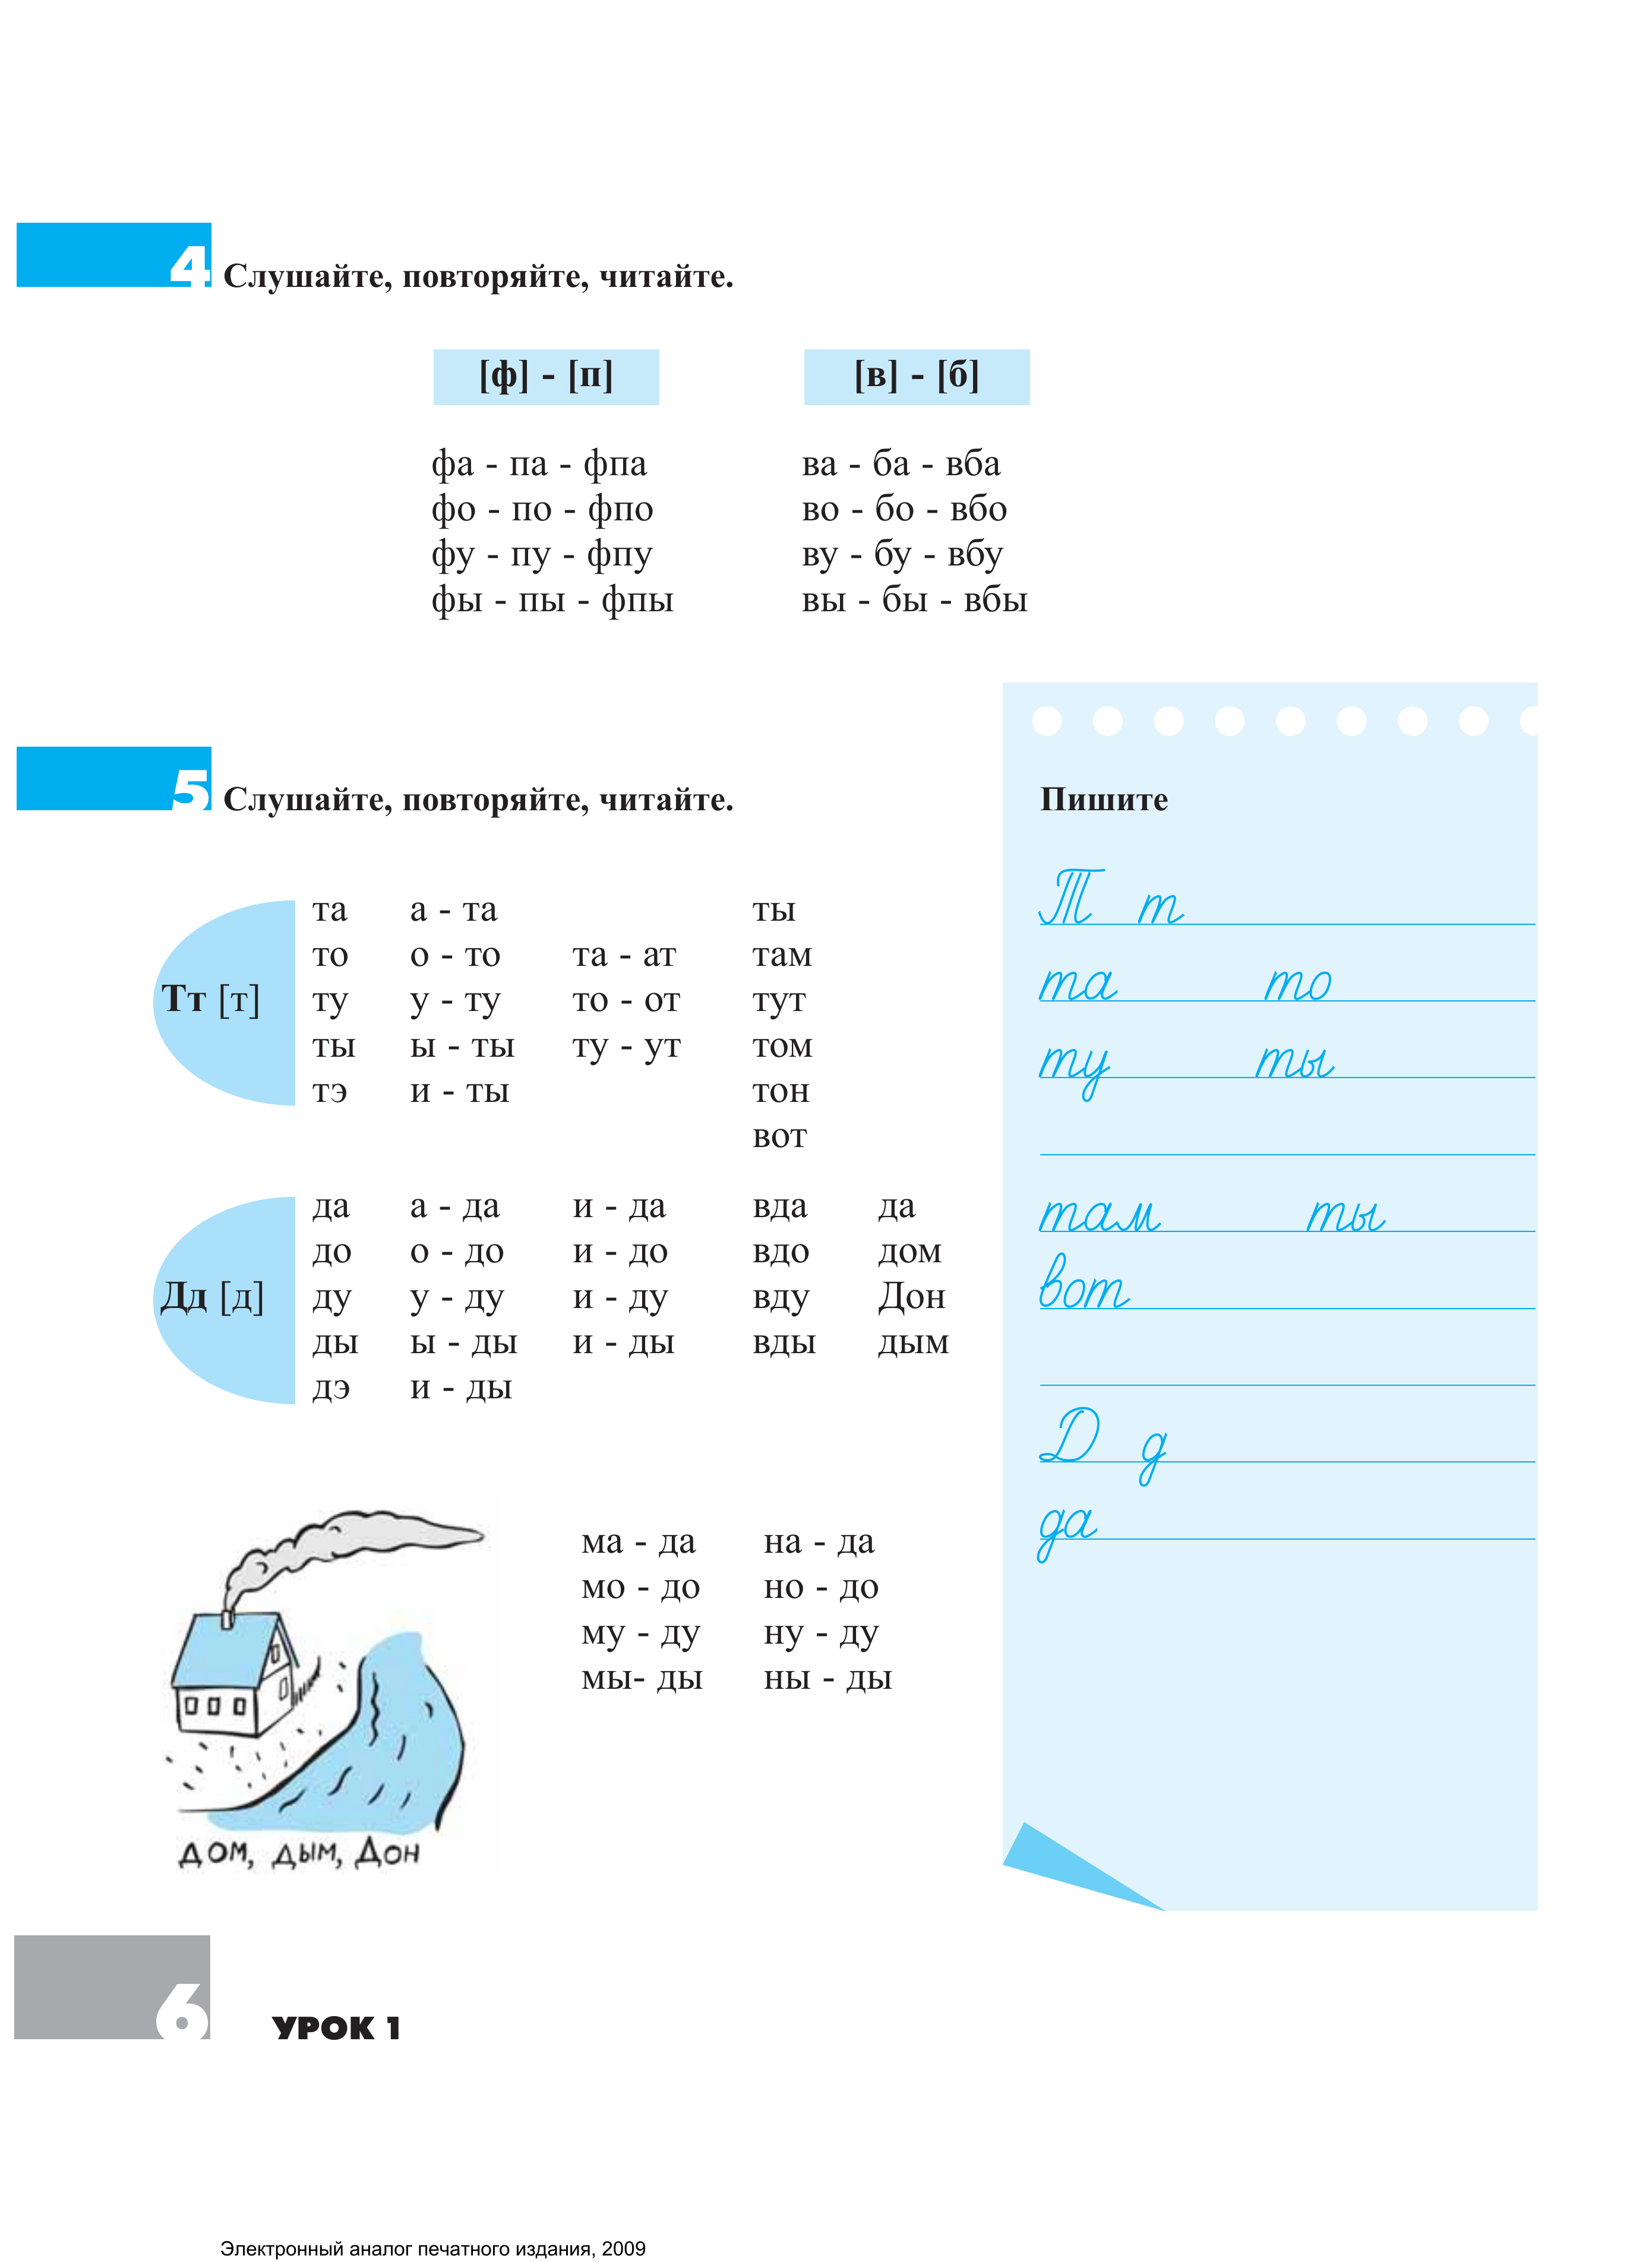 4 Слушайте, повторяйте, читайте.
[ф] - [п] [в] - [б]
фа - па - фпа ва - ба - вба
фо - по - фпо во - бо - вбо
фу - пу - фпу ву - бу - вбу
фы - пы - фпы вы - бы - вбы
5 Слушайте, повторяйте, читайте.
Тт [т]
та а - та ты
то о - то та - ат там
ту у - ту то - от тут
ты ы - ты ту - ут том
тэ и - ты тон
вот
Дд [д]
да а - да и - да вда да
до о - до и - до вдо дом
ду у - ду и - ду вду Дон
ды ы - ды и - ды вды дым
дэ и - ды
ма - да на - да
мо - до но - до
му - ду ну - ду
мы- ды ны - ды
дом, дым, Дон
Пишите
Т т
та то
ту ты
там ты
вот
Д д
да
6 УРОК 1
Электронный аналог печатного издания, 2009